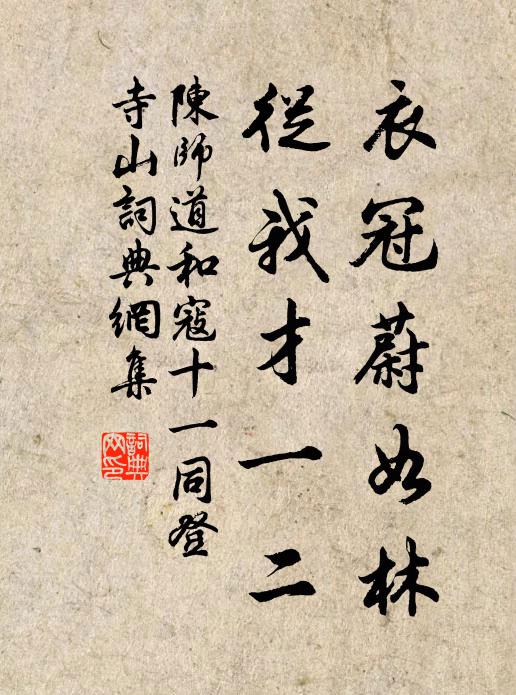 衣冠蔚如林
從我才一二
陳師道和寇十一同登
寺山詞典網集
詞典
网印